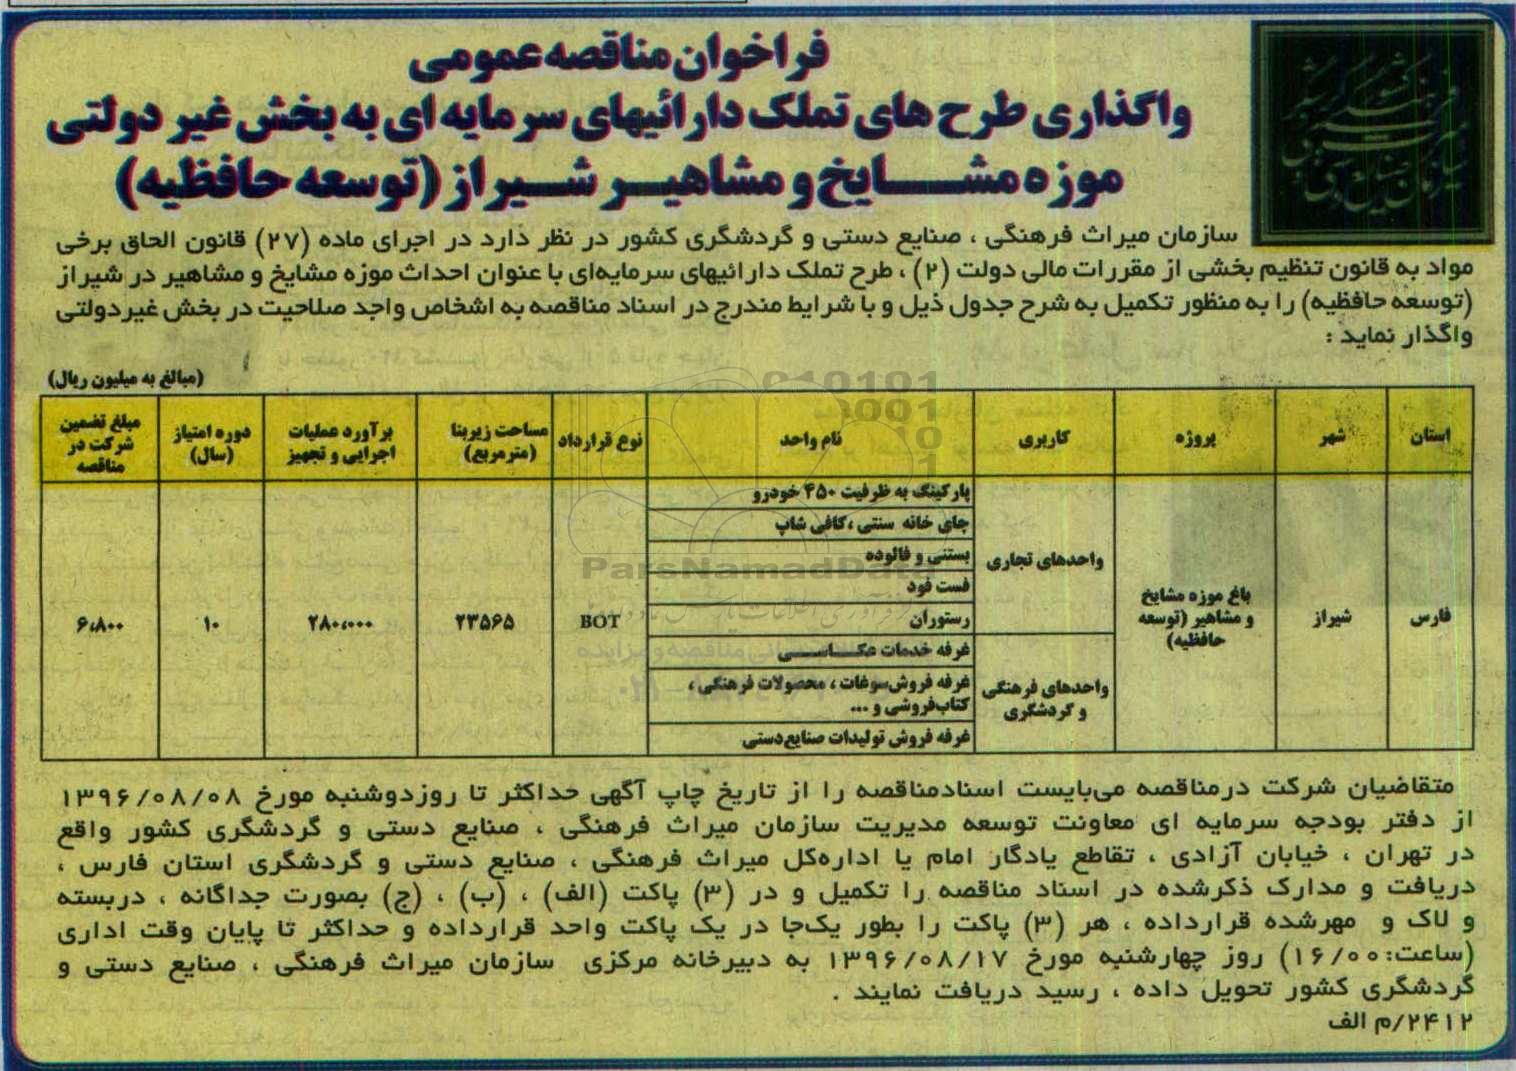 فراخوان مناقصه عمومی
واگذاری طرح های تملک دارائیهای سرمایه ای به بخش غیر دولتی
موزه مشایخ و مشاهیر شیراز (توسعه حافظیه)
سازمان میراث فرهنگی ، صنایع دستی و گردشگری کشور در نظر دارد در اجرای ماده (۲۷) قانون الحاق برخی
مواد به قانون تنظیم بخشی از مقررات مالی دولت (۲) ، طرح تملک دارائیهای سرمایه‌ای با عنوان احداث موزه مشایخ و مشاهیر در شیراز
(توسعه حافظیه) را به منظور تکمیل به شرح جدول ذیل و با شرایط مندرج در اسناد مناقصه به اشخاص واجد صلاحیت در بخش غیردولتی
واگذار نماید :
(مبالغ به میلیون ریال)
استان
شهر
پروژه
کاربری
نام واحد
نوع قرارداد
مساحت زیربنا
(مترمربع)
برآورد عملیات
اجرایی و تجهیز
دوره امتیاز
(سال)
مبلغ تضمین
شرکت در
مناقصه
فارس
شیراز
باغ موزه مشایخ
و مشاهیر (توسعه
حافظیه)
واحدهای تجاری
پارکینگ به ظرفیت ۴۵۰ خودرو
چای خانه سنتی ،کافی شاپ
بستنی و فالوده
فست فود
رستوران
واحدهای فرهنگی
و گردشگری
غرفه خدمات عکاسی
غرفه فروش‌سوغات ، محصولات فرهنگی ،
کتاب‌فروشی و ...
غرفه فروش تولیدات صنایع‌دستی
BOT
۲۳۵۶۵
۲۸۰،۰۰۰
۱۰
۶،۸۰۰
ParsNamadData
متقاضیان شرکت درمناقصه می‌بایست اسنادمناقصه را از تاریخ چاپ آگهی حداکثر تا روزدوشنبه مورخ ۱۳۹۶/۰۸/۰۸
از دفتر بودجه سرمایه ای معاونت توسعه مدیریت سازمان میراث فرهنگی ، صنایع دستی و گردشگری کشور واقع
در تهران ، خیابان آزادی ، تقاطع یادگار امام یا اداره‌کل میراث فرهنگی ، صنایع دستی و گردشگری استان فارس ،
دریافت و مدارک ذکرشده در اسناد مناقصه را تکمیل و در (۳) پاکت (الف) ، (ب) ، (ج) بصورت جداگانه ، دربسته
و لاک و مهرشده قرارداده ، هر (۳) پاکت را بطور یک‌جا در یک پاکت واحد قرارداده و حداکثر تا پایان وقت اداری
(ساعت:۱۶/۰۰) روز چهارشنبه مورخ ۱۳۹۶/۰۸/۱۷ به دبیرخانه مرکزی سازمان میراث فرهنگی ، صنایع دستی و
گردشگری کشور تحویل داده ، رسید دریافت نمایند .
۲۴۱۲/م الف